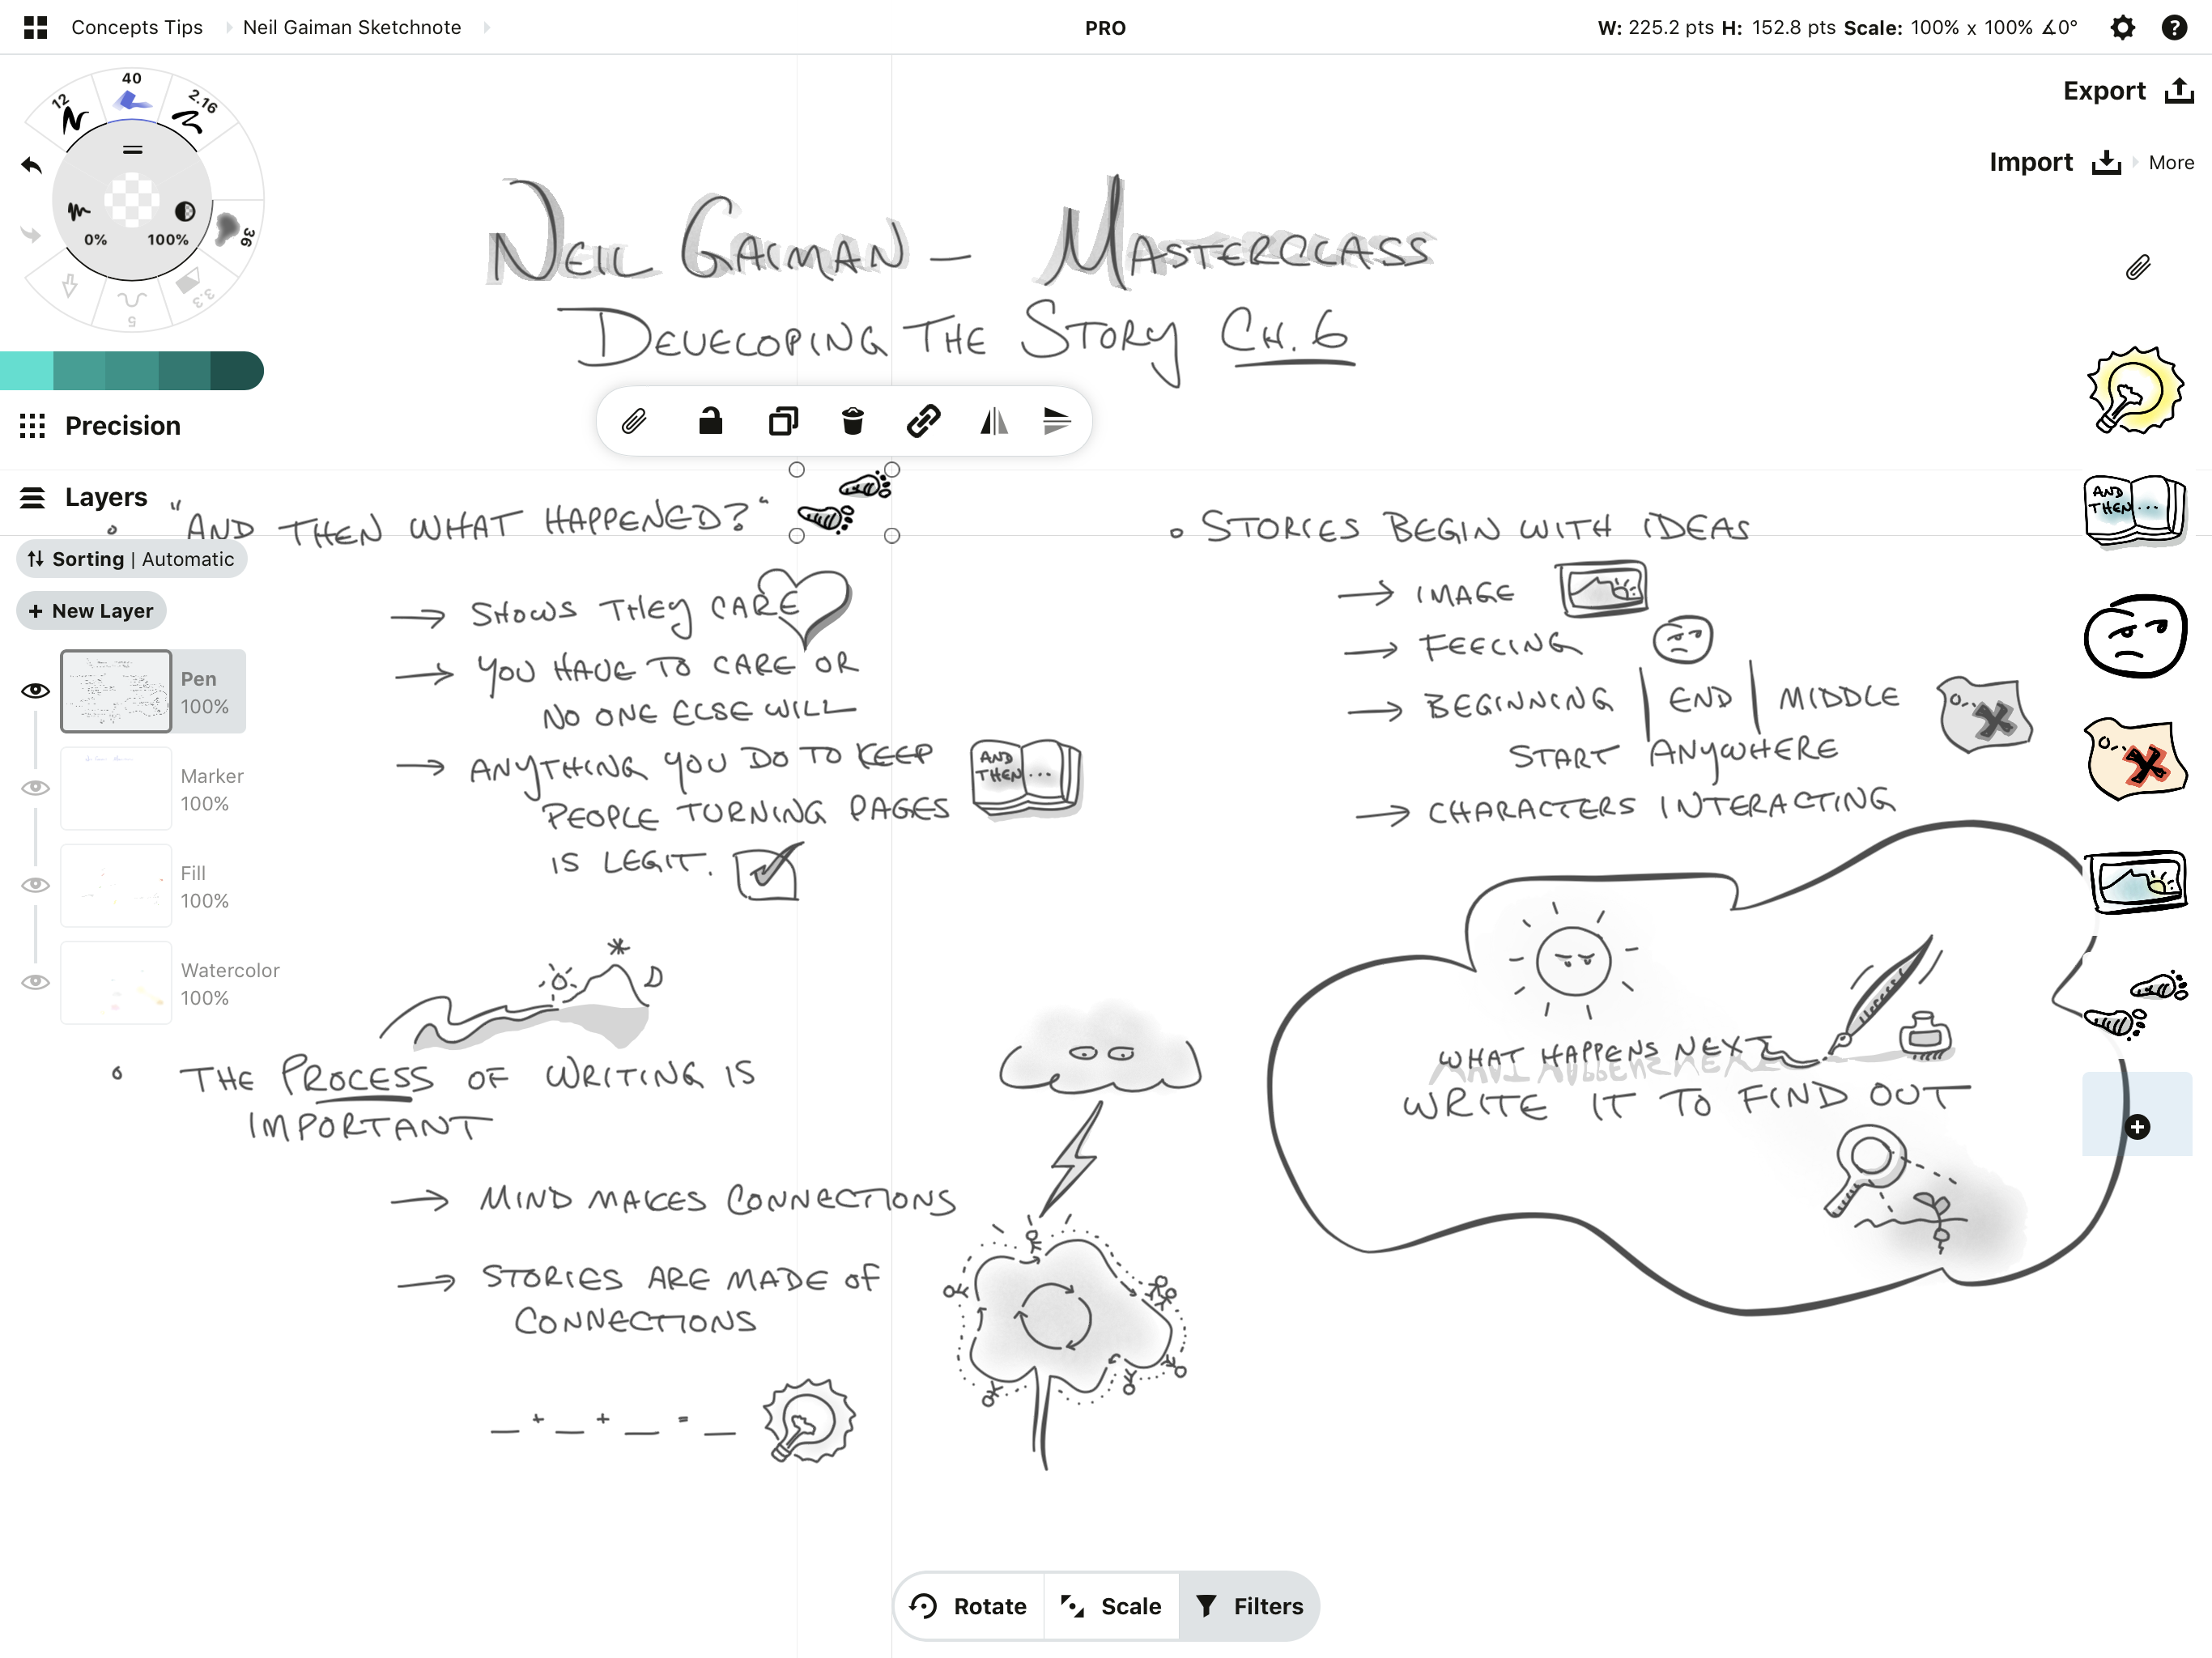 Concepts Tips
Neil Gaiman Sketchnote
PRO
W: 225.2 pts H: 152.8 pts Scale: 100% x 100% ∡0°
Export
Import
More
12
40
2.16
36
3.3
5
0%
100%
Precision
Layers
Sorting | Automatic
+ New Layer
Pen
100%
Marker
100%
Fill
100%
Watercolor
100%
NEIL GAIMAN – MASTERCLASS
DEVELOPING THE STORY CH. 6
"AND THEN WHAT HAPPENED?"
→ SHOWS THEY CARE
→ YOU HAVE TO CARE OR
NO ONE ELSE WILL
→ ANYTHING YOU DO TO KEEP
PEOPLE TURNING PAGES
IS LEGIT.
AND
THEN...
THE PROCESS OF WRITING IS
IMPORTANT
→ MIND MAKES CONNECTIONS
→ STORIES ARE MADE OF
CONNECTIONS
_ + _ + _ = _
STORIES BEGIN WITH IDEAS
→ IMAGE
→ FEELING
→ BEGINNING | END | MIDDLE
START ANYWHERE
→ CHARACTERS INTERACTING
WHAT HAPPENS NEXT
WRITE IT TO FIND OUT
AND
THEN...
Rotate
Scale
Filters